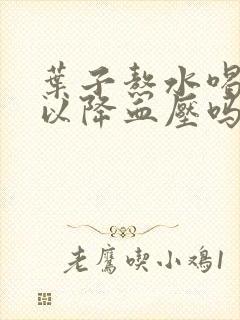 葉子熬水喝
以降血壓嗎
老鷹喫小鸡1